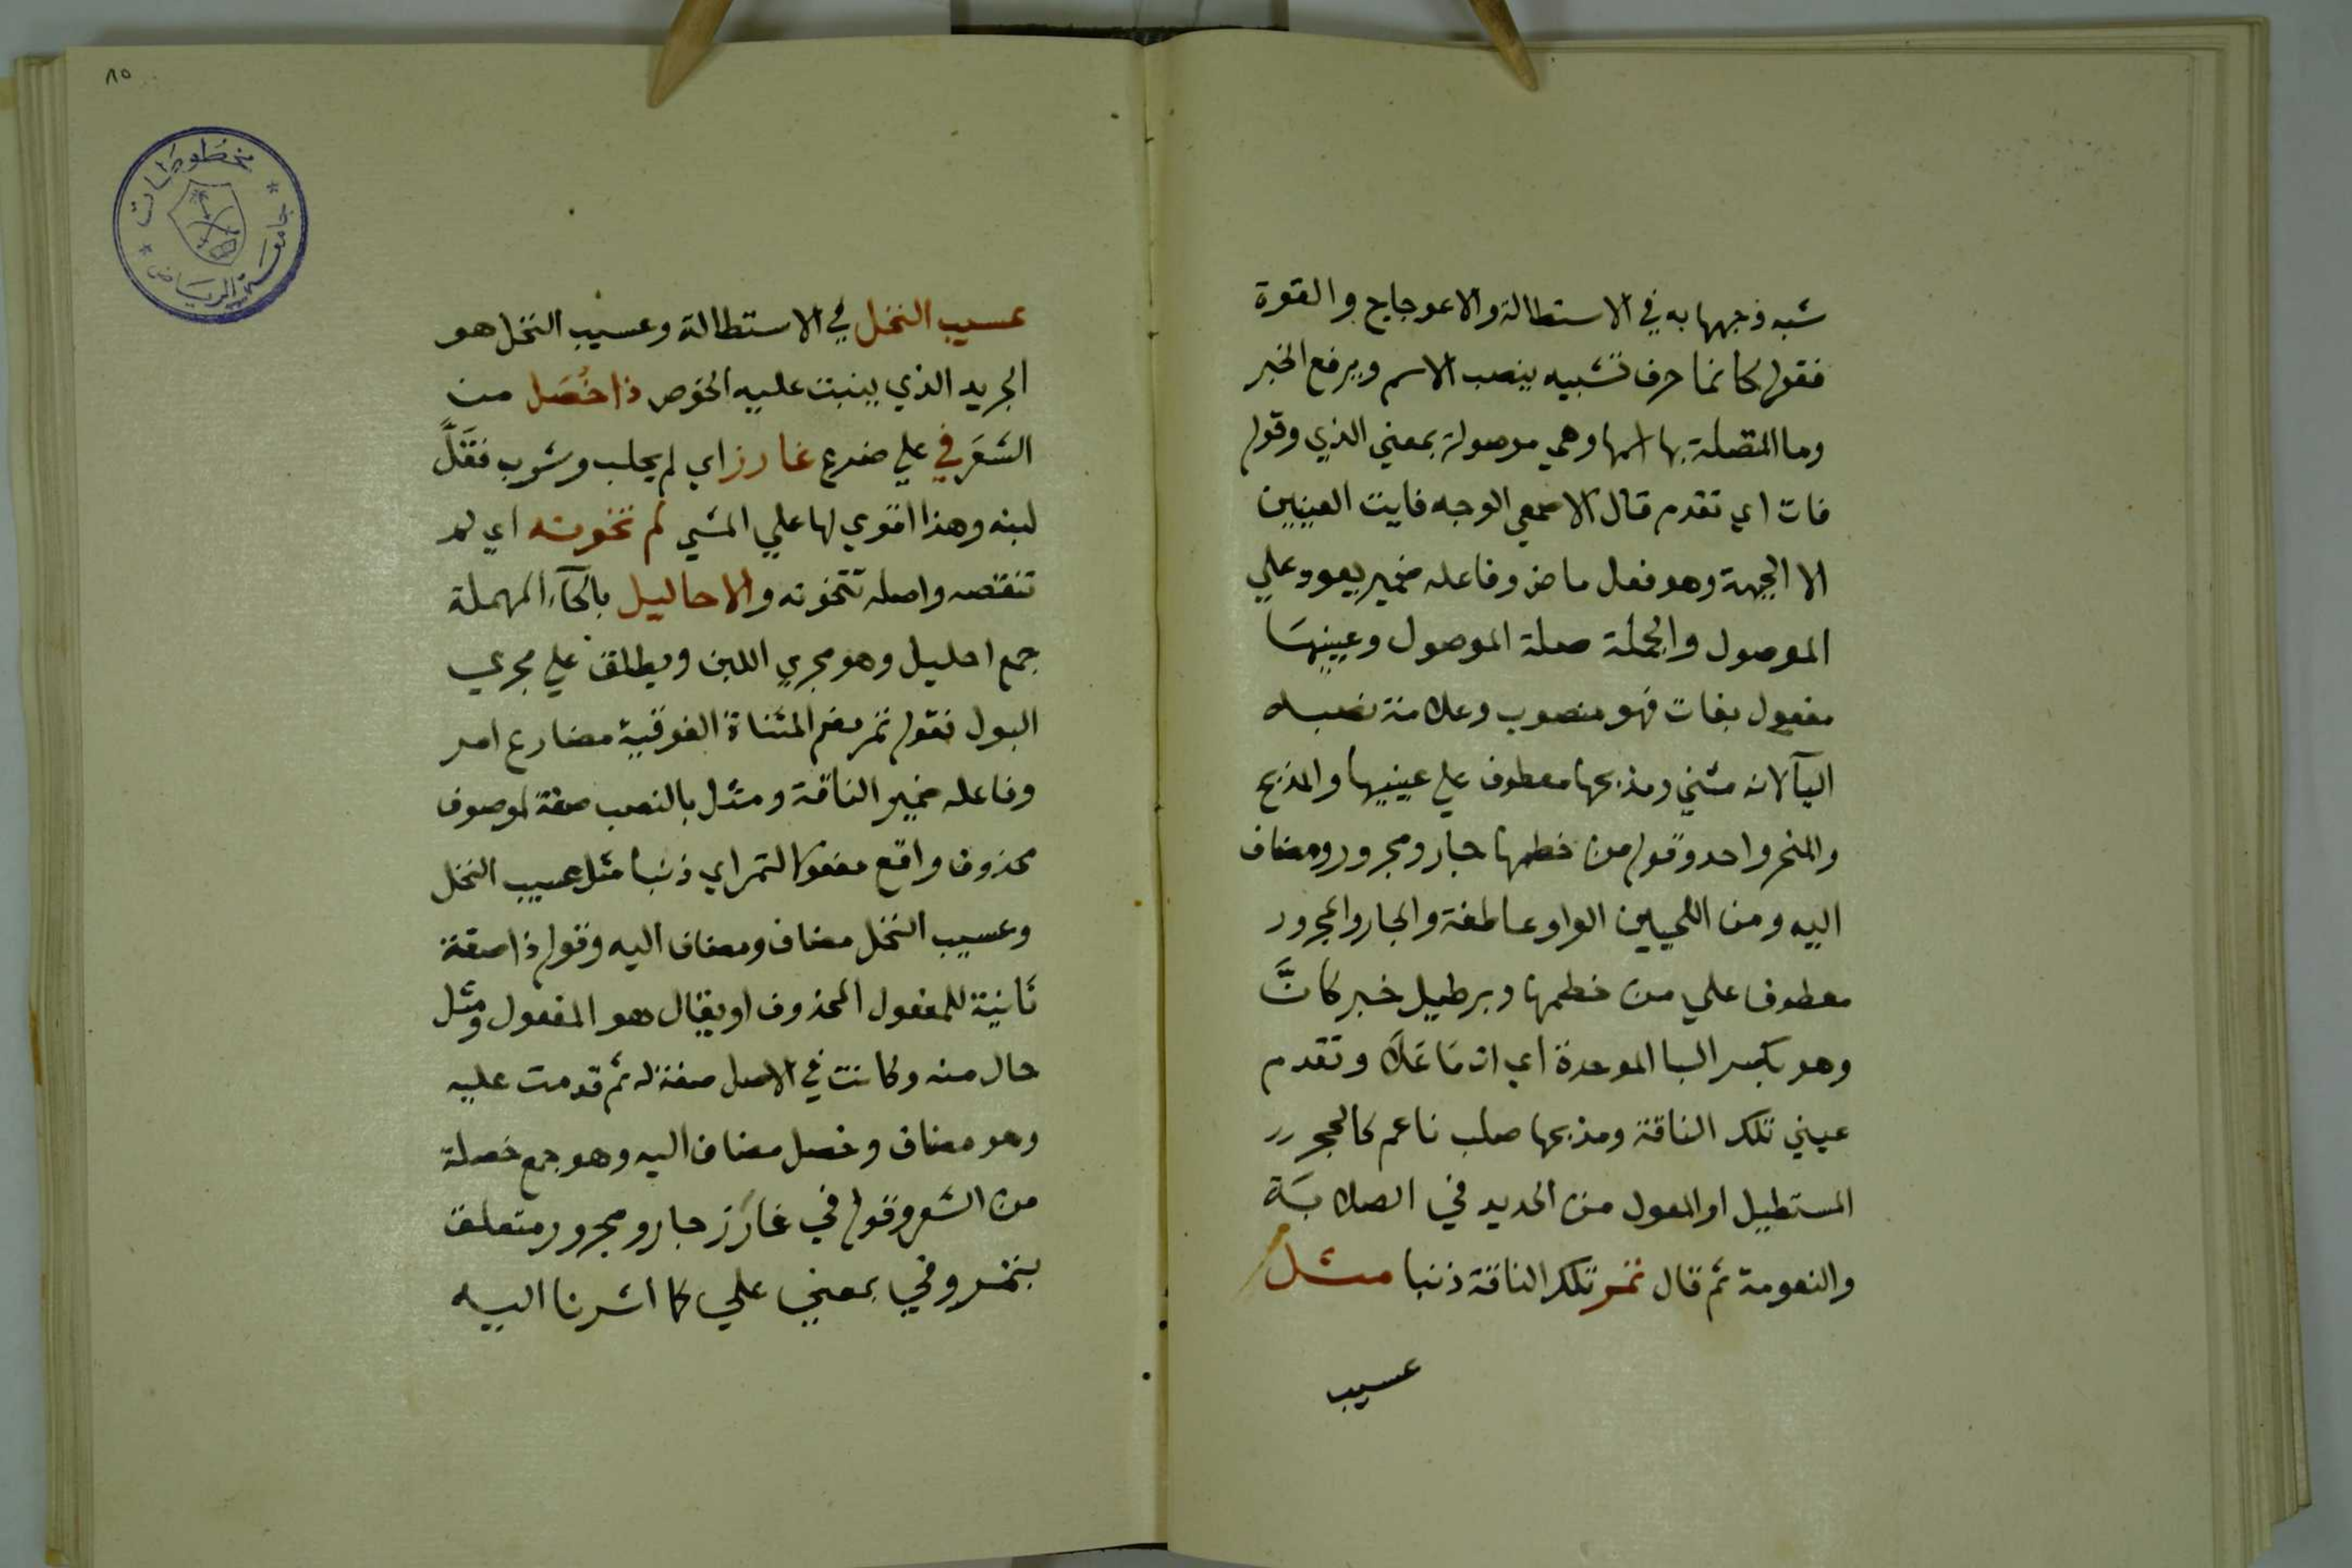 شبه وجهها به في الاستطالة والاعوجاج والقوة
فقوله كانما حرف تشبيه ينصب الاسم ويرفع الخبر
وما المتصلة بها اسمها وهي موصولة بمعني الذي وقوله
فات اي تقدم قال الاصمعي الوجه فايت العينين
الا الجبهة وهو فعل ماض وفاعله ضمير يعود علي
الموصول والجملة صلة الموصول وعينيها
مفعول بفات فهو منصوب وعلامة نصبه
اليآ لانه مثني ومذبحها معطوف علي عينيها والمذبح
والمنحر واحد وقوله من خطمها جار ومجرور ومضاف
اليه ومن اللحيين الواو عاطفة والجار والمجرور
معطوف علي من خطمها وبرطيل خبر كانَّ
وهو بكسر البا الموحدة اي ان ما علا وتقدم
عيني تلك الناقة ومذبحها صلب ناعم كالحجر
المستطيل او المعول من الحديد في الصلابة
والنعومة ثم قال تمر تلك الناقة ذنبا مثل
عسيب
٨٥
مخطوطات
جامعة الرياض
عسيب النخل في الاستطالة وعسيب النخل هو
الجريد الذي ينبت عليه الخوص ذا خُصَل من
الشَعَر في علي ضرع غارز اي لم يحلب وشرب فقلَّ
لبنه وهذا اقوي لها علي المشي لم تخونه اي لم
تنقصه واصله تتخونه والاحاليل بالحآء المهملة
جمع احليل وهو مجري اللبن ويطلق علي مجري
البول فقوله تمر بضم المثناة الفوقية مضارع امر
وفاعله ضمير الناقة ومثل بالنصب صفة لموصوف
محذوف واقع مفعولا لتمر اي ذنبا مثل عسيب النخل
وعسيب النخل مضاف ومضاف اليه وقوله ذا صفة
ثانية للمفعول المحذوف او يقال هو المفعول ومثل
حال منه وكانت في الاصل صفة له ثم قدمت عليه
وهو مضاف وخصل مضاف اليه وهو جمع خصلة
من الشعر وقوله في غارز جار ومجرور متعلق
بتمر وفي بمعني علي كما اشرنا اليه